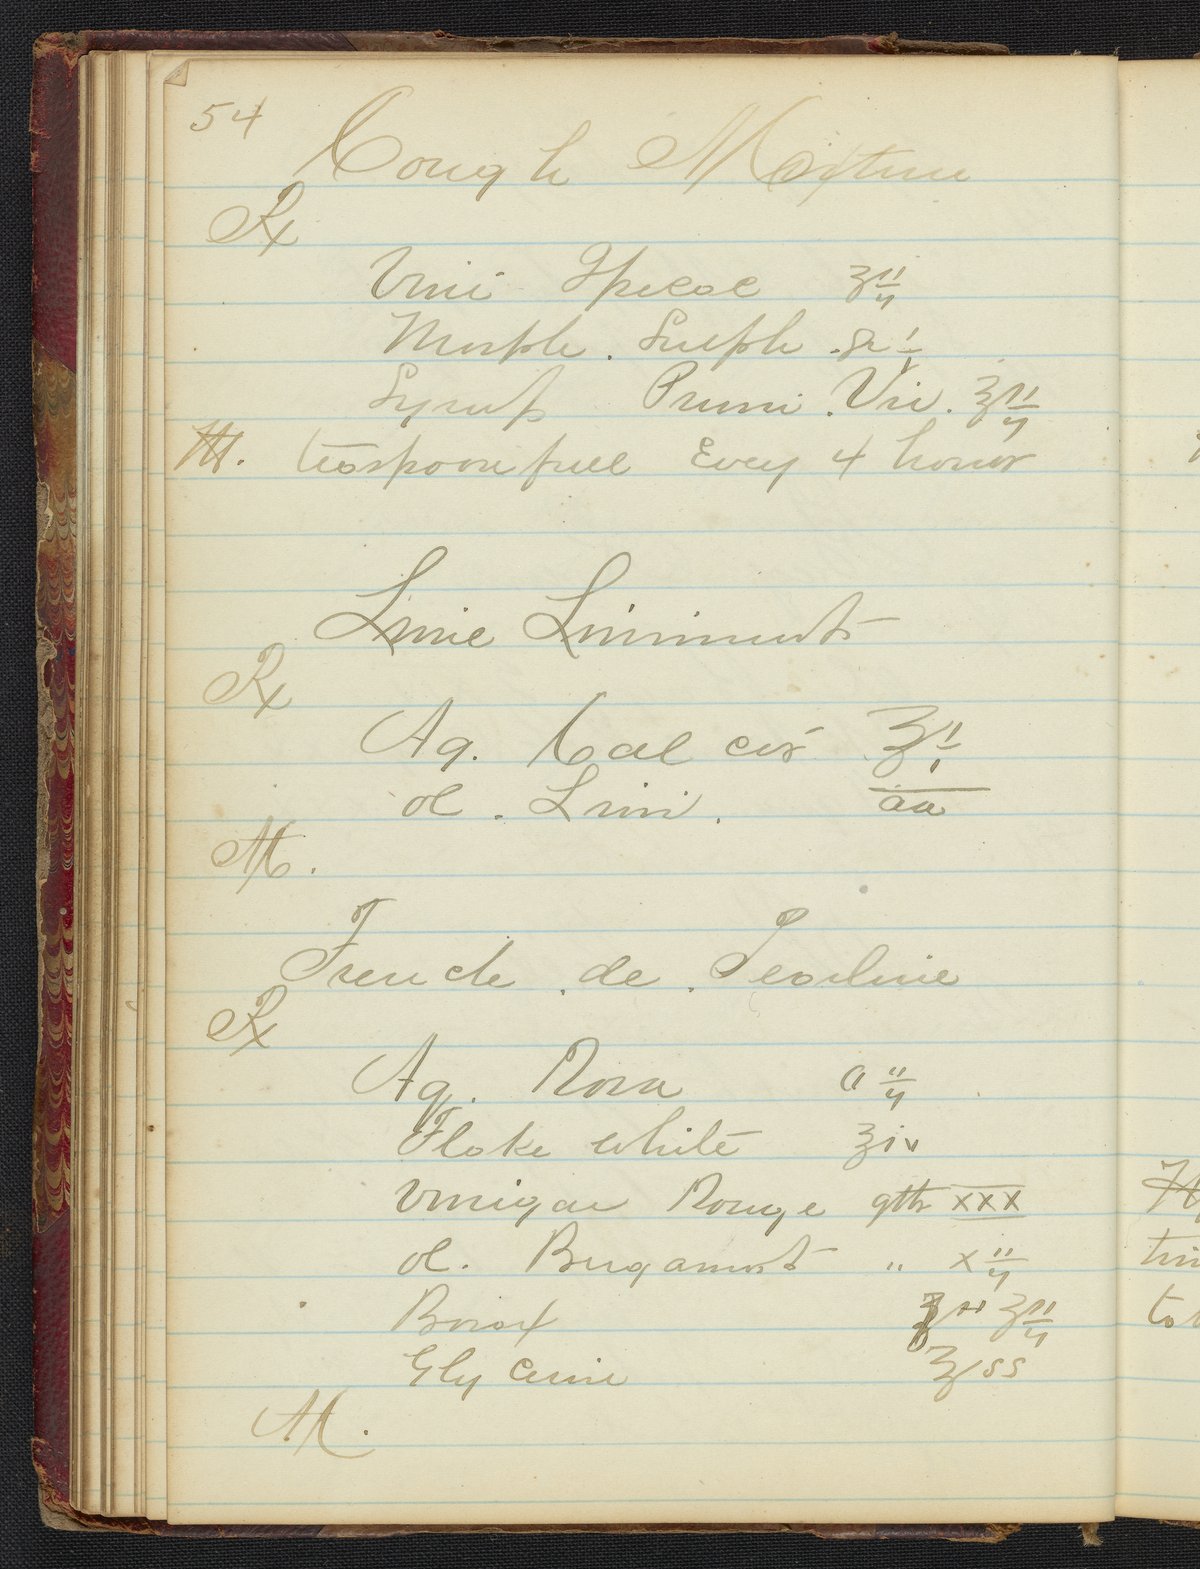 54
Cough Mixture
Rx
Vini Ipecac ʒii
Morph. Sulph. gr i
Syrup Pruni. Vir. ʒii
M. teaspoonfull Every 4 hours
Lime Liniment
Rx
Aq. Calcis ℥i
ol. Lini. aa
M.
French de Pearline
Rx
Aq. Rosa O ii
Flake white ʒiv
Vinigar Rouge gtts xxx
ol. Bergamot " xii
Borax ʒii
Glycerine ℥ss
M.
tin
to